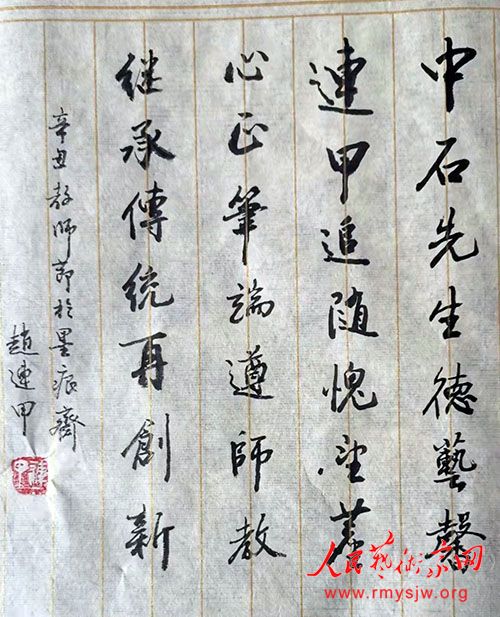 中石先生德藝馨
連甲追随愧望塵
心正筆端遵師教
继承傳统再創新
辛丑教師節於墨痕齋
趙連甲
人民藝術家网
www.rmysjw.org